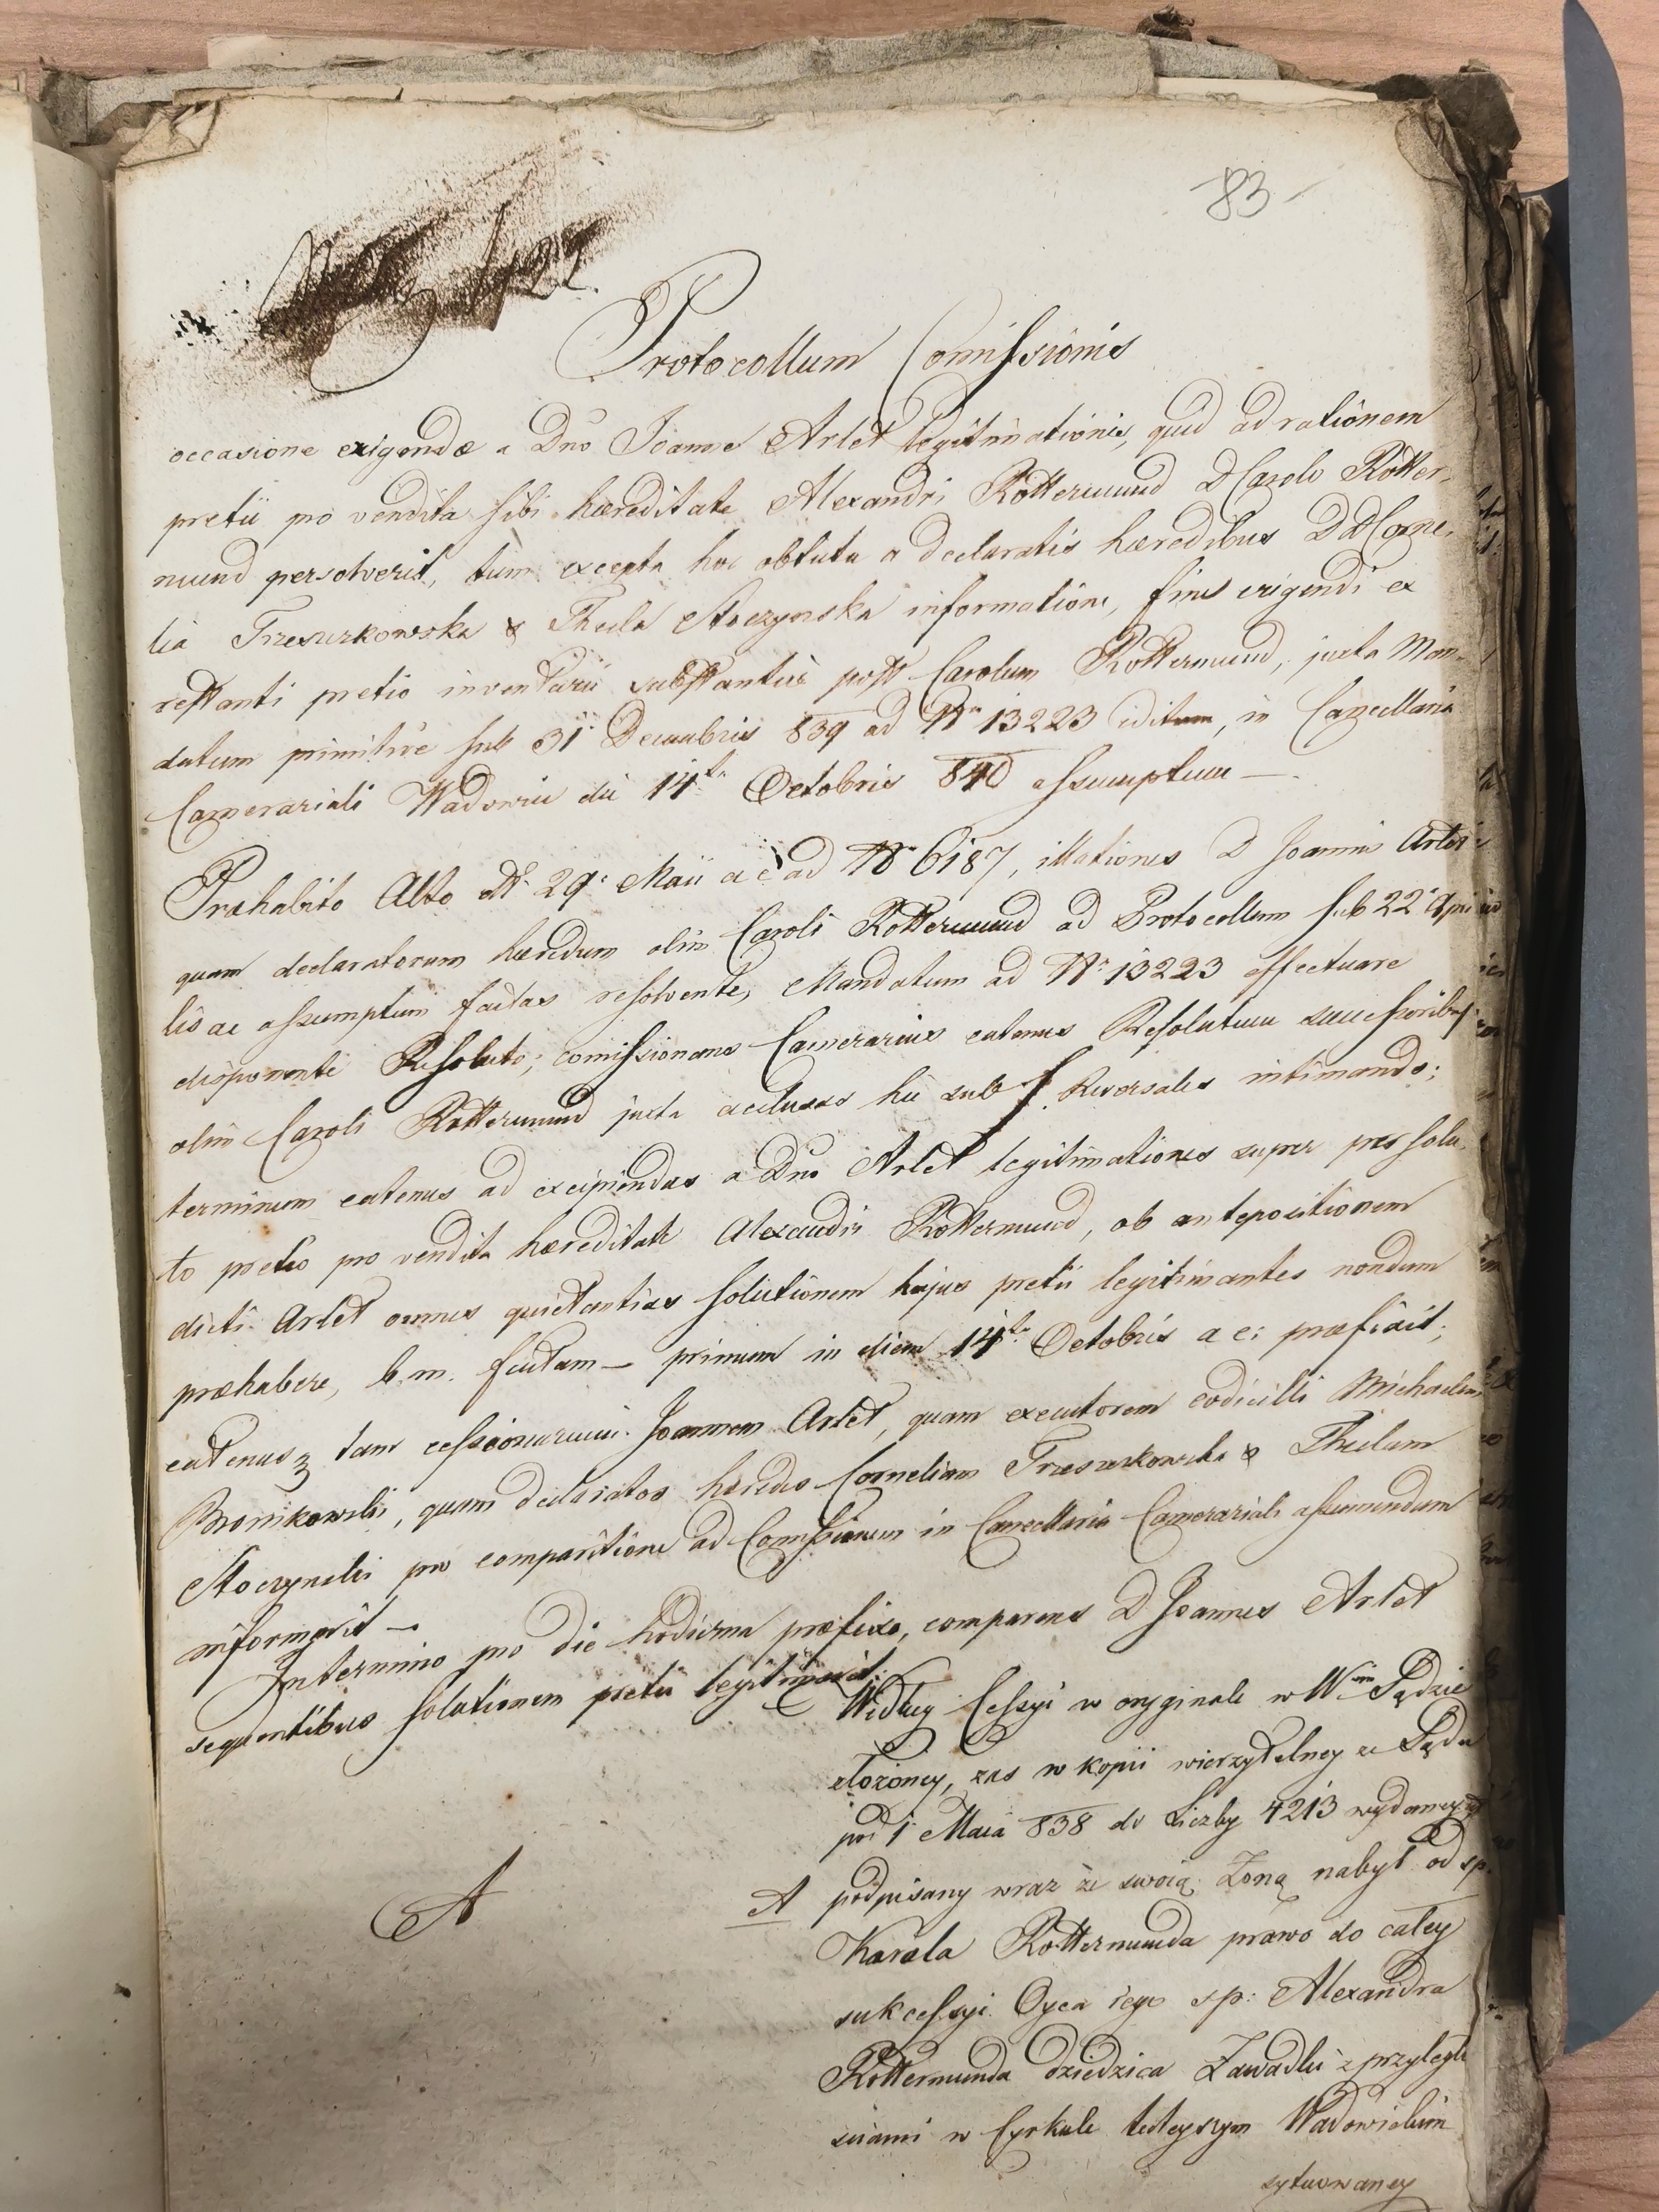 83
Protocollum Comissionis
occasione exigendæ a Dno Joanne Artet legitimationis, quid ad rationem
pretii pro vendita sibi hæreditate Alexandri Rottermund D Carolo Rotter-
mund persolverit, tum excepta hoc obtutu a declaratis hæredibus DD Corne-
lia Trzeszkowska & Thecla Stoczynska informatione, fine exigendi ex
restanti pretio inventarii substantiæ post Carolum Rottermund, juxta Man-
datum primitive sub 31 Decembris 839 ad Nr 13223 editum, in Cancellaria
Camerariali Wadowice die 14ta Octobris 840 assumptum —
Præhabito Alto dto 29 Maii a c ad Nr 6187, illationes D Joannis Artet
quam declaratorum hæredum olim Caroli Rottermund ad Protocollum sub 22 Apri
lis ac assumptum factas resolvente, Mandatum ad Nr 13223 effectuare
disponente Resoluto; comissionans Camerarius eatenus Resolutum successoribus
olim Caroli Rottermund juxta acclusas hic sub ſ. Reversales intimando;
terminum eatenus ad excipiendas a Dno Artet legitimationes super persolu-
to pretio pro vendita hæreditate Alexandri Rottermund, ob antepositionem
dicti Artet omnes quietantias solutionem hujus pretii legitimantes nondum
præhabere, b. m. factam — primum in diem 14ta Octobris a c: præfixit;
eatenusq tam cessionarium Joannem Artet, quam executorem codicilli Michaelem
Bronikowski, quam declaratos hæredes Corneliam Trzeszkowska & Theclam
Stoczynski pro comparitione ad Comissionem in Cancellaria Camerariali assumendam
informavit —.
In termino pro die hodierna præfixo, comparens D Joannes Artet
sequentibus solutionem pretii legitimavit:
Według Cessyi w oryginale w W Sądzie
złożoney, zas w kopii wierzytelney ze Sądu
pod 1 Maia 838 do Liczby 4213 wydaney
A A podpisany wraz ze swoią Żoną nabył od sp.
Karola Rottermunda prawo do całey
sukcessyi Oyca iego sp: Alexandra
Rottermunda dziedzica Zawadki z przyległo
sciami w Cyrkule tuteyszym Wadowickim
sytuowaney